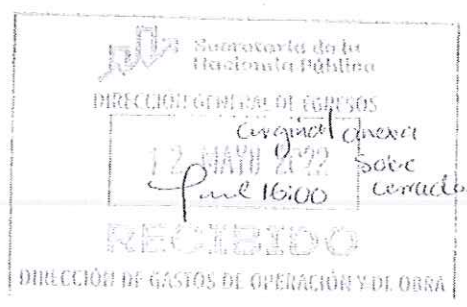 Secretaría de la
Hacienda Pública
DIRECCIÓN GENERAL DE EGRESOS
original anexa
12 MAYO 2022 sobre
16:00 cerrado
RECIBIDO
DIRECCIÓN DE GASTOS DE OPERACIÓN Y DE OBRA